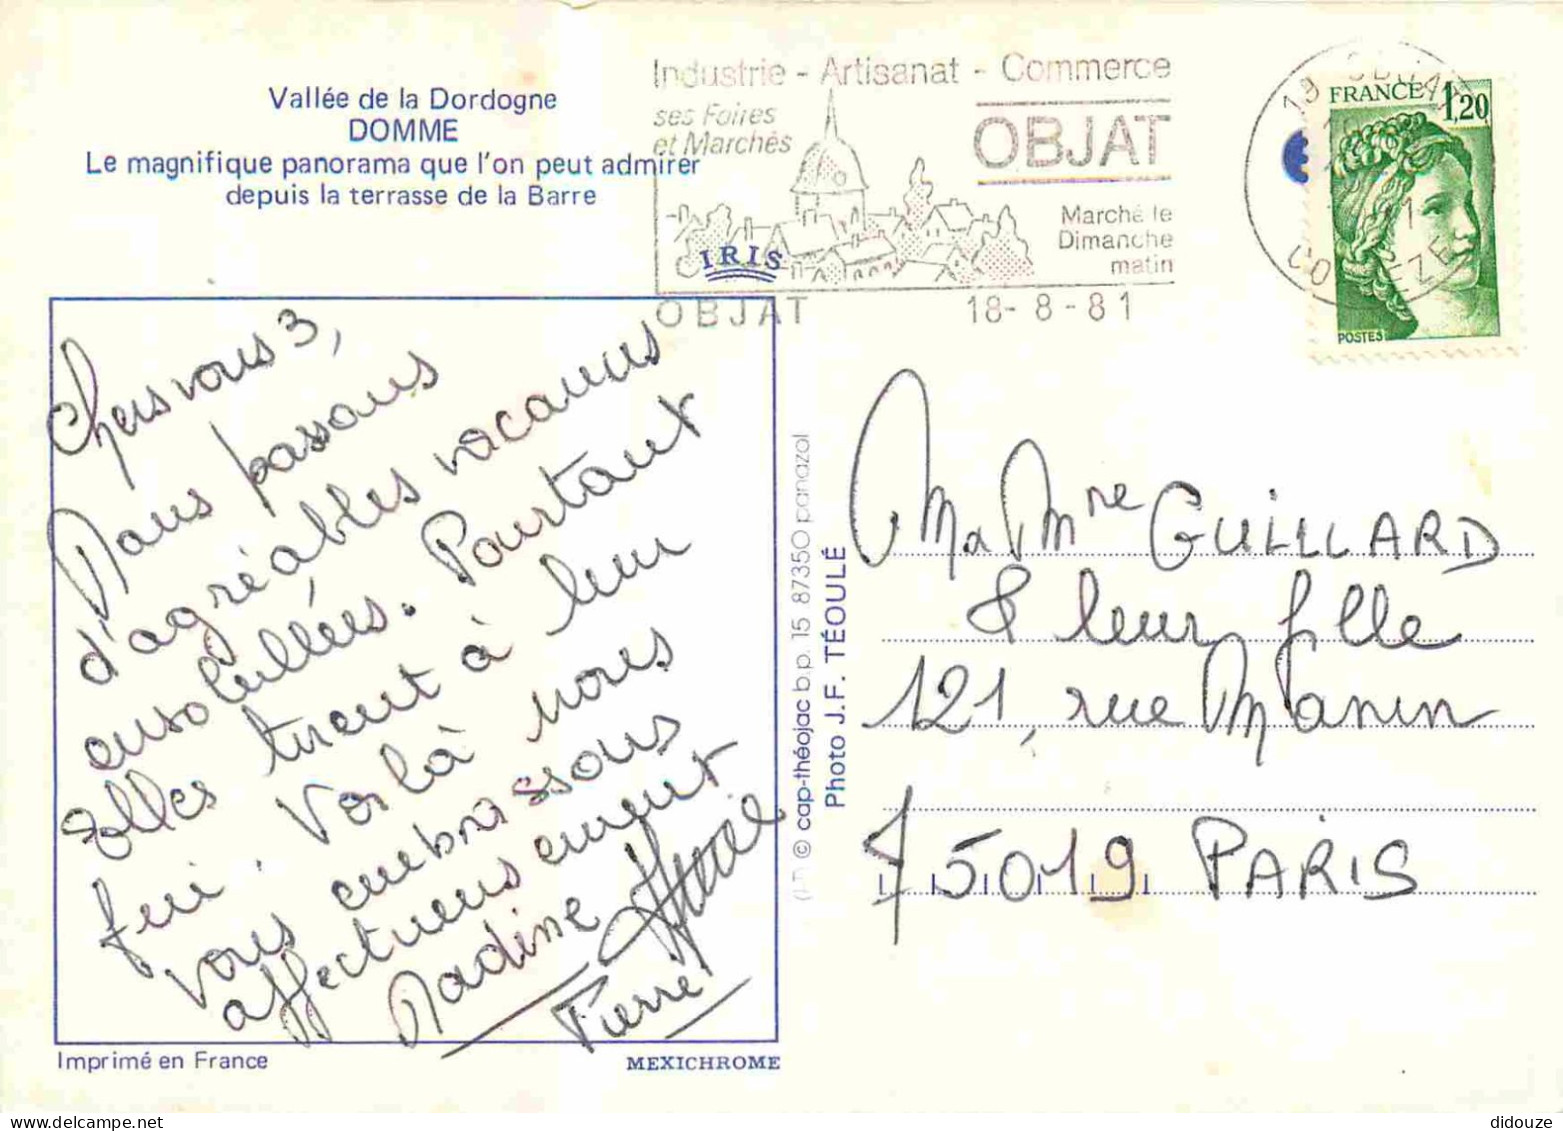 Vallée de la Dordogne
DOMME
Le magnifique panorama que l'on peut admirer
depuis la terrasse de la Barre
Industrie - Artisanat - Commerce
ses Foires
et Marchés
OBJAT
Marché le
Dimanche
matin
OBJAT 18-8-81
IRIS
FRANCE 1,20
POSTES
Chers vous 3,
Nous passons
d'agréables vacances
ensoleillées. Pourtant
Elles tirent à leur
fin. Voilà nous
vous embrassons
affectueusement
Nadine
Pierre
Imprimé en France
MEXICHROME
© cap-théojac b.p. 15 87350 panazol
Photo J.F. TÉOULÉ
M a Mme GUILLARD
& leur fille
121, rue Manin
75019 PARIS
didouze